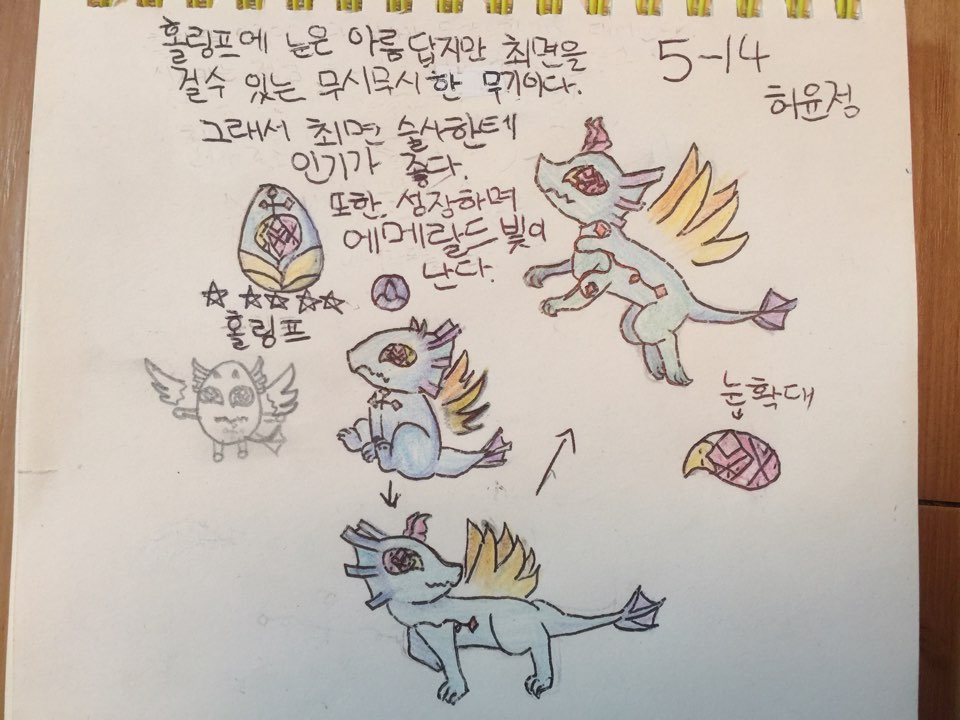 홀링프에 눈은 아름답지만 최면을
걸수 있는 무시무시한 무기이다.
5-14
허윤정
그래서 최면 술사한테
인기가 좋다.
또한, 성장하며
에메랄드 빛이
난다.
홀링프
눈확대